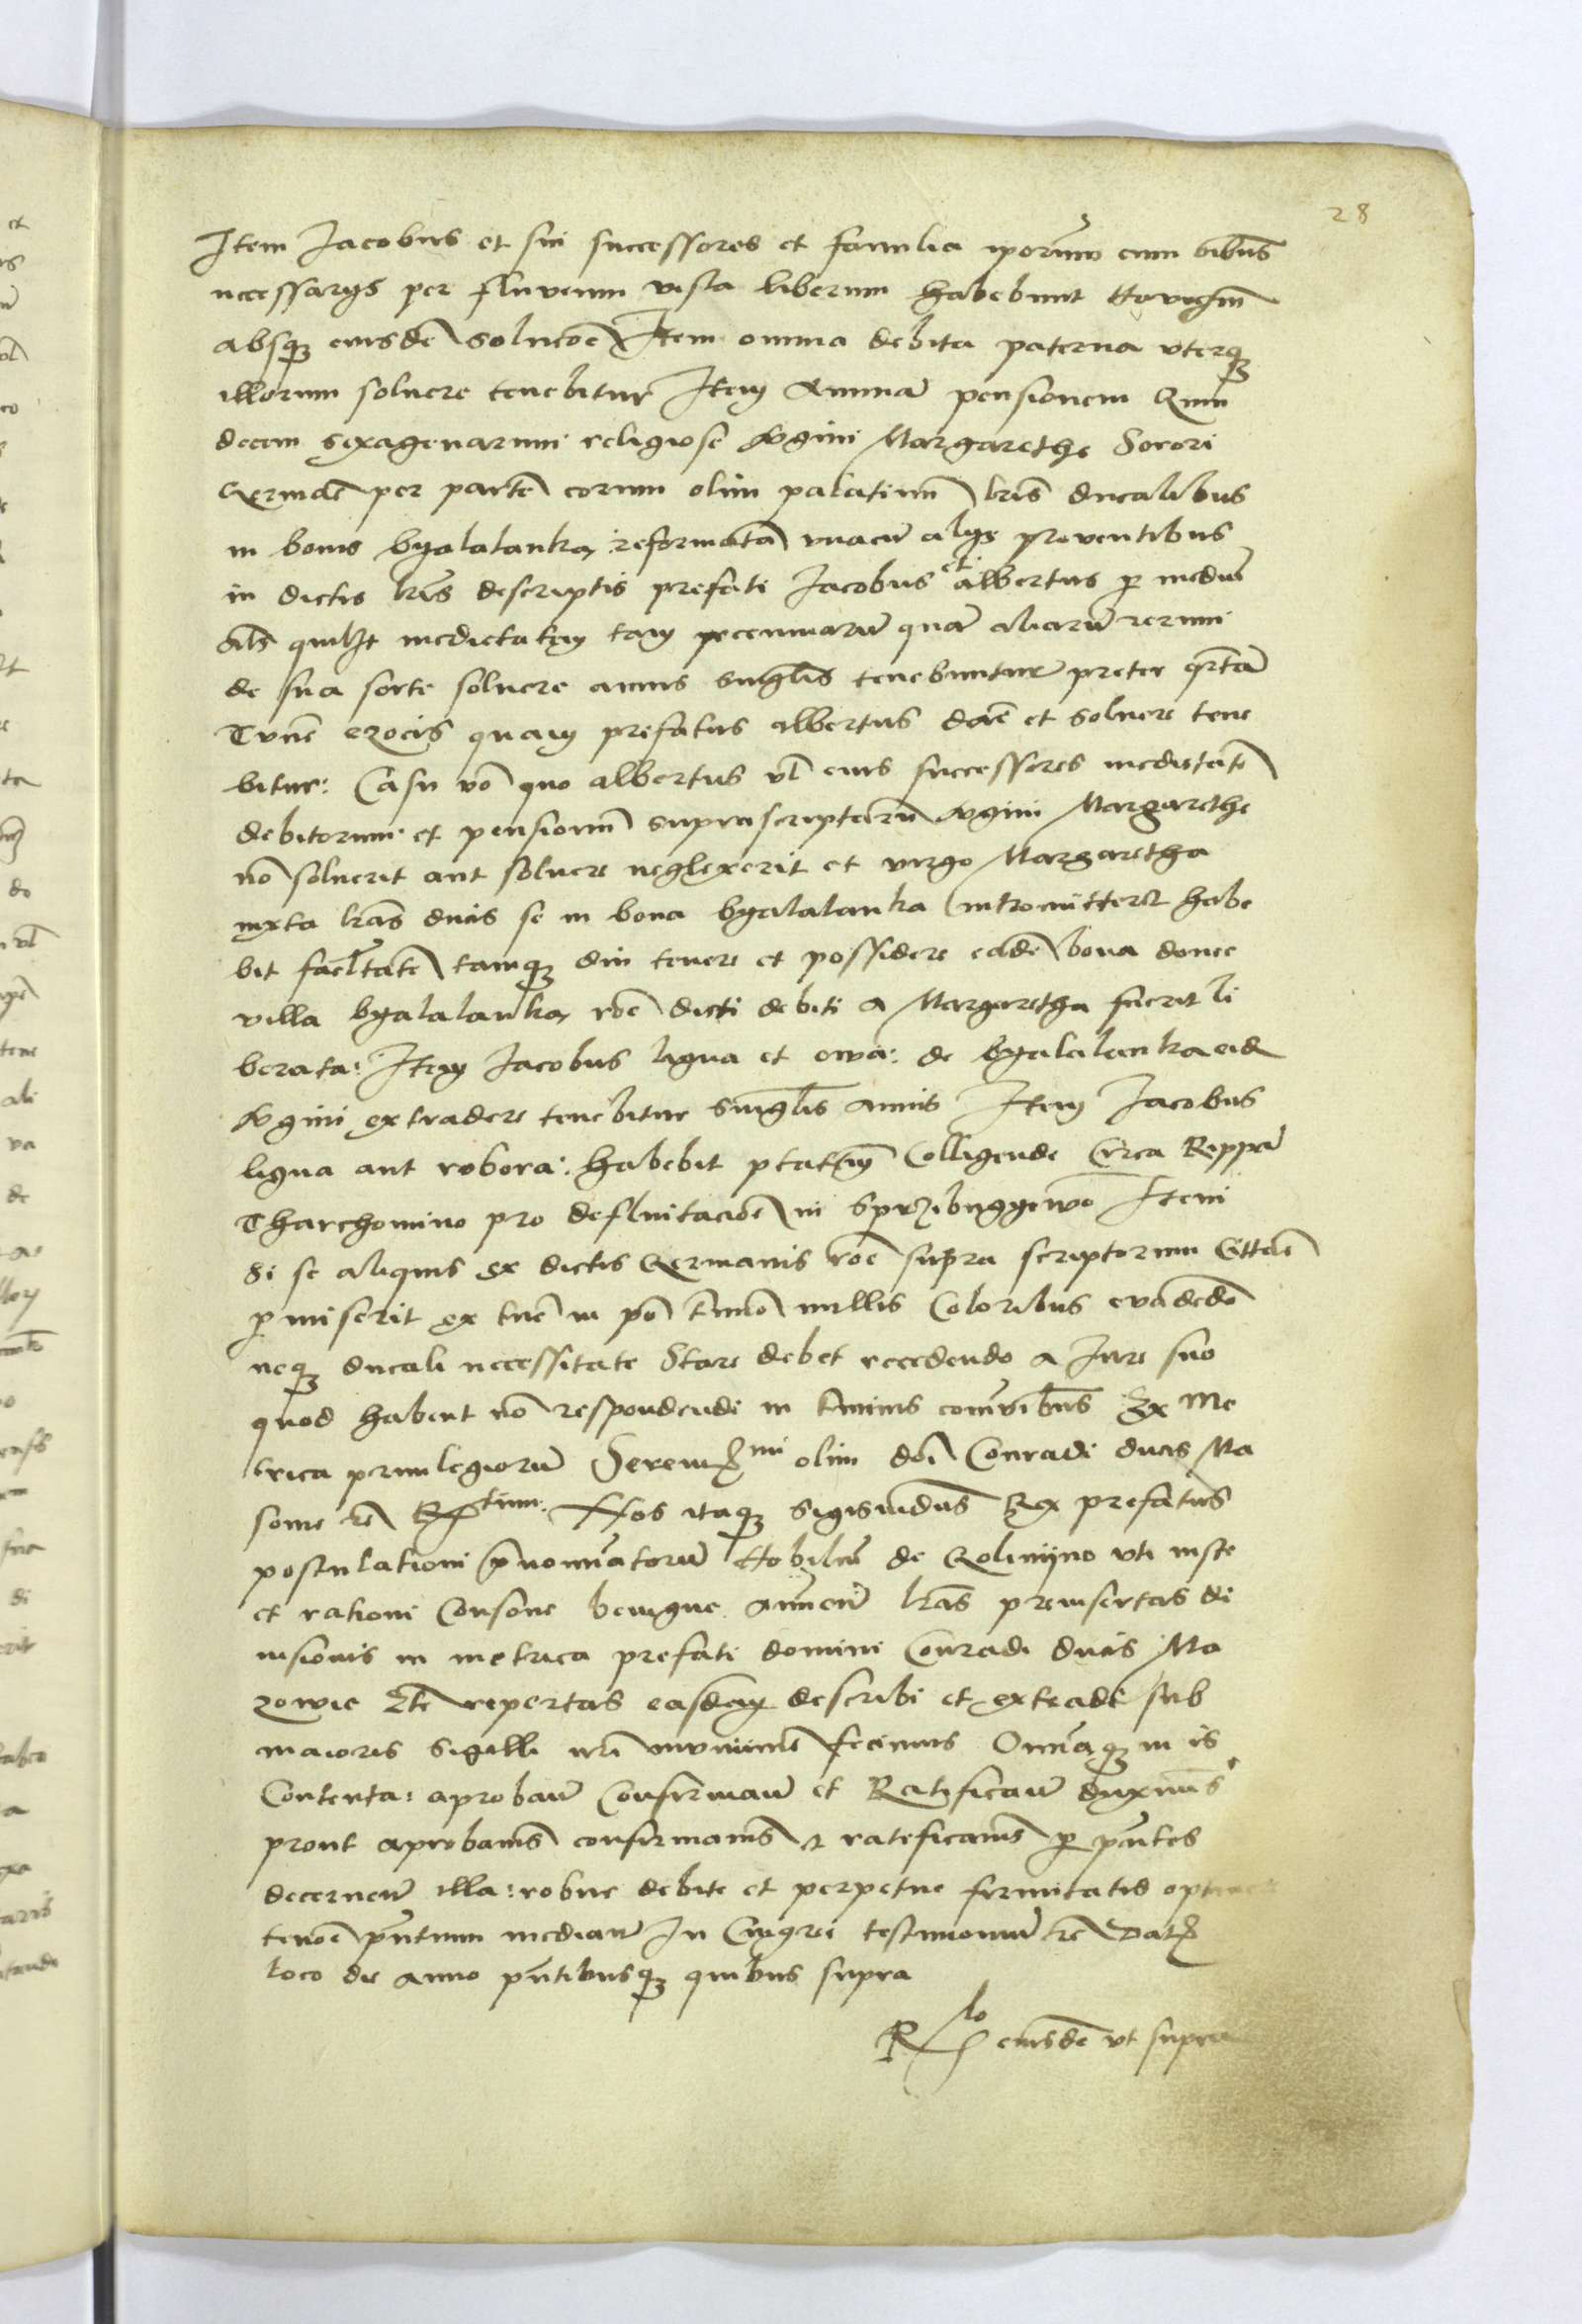 28
Item Jacobus et sui successores et familia iporum cum oibus
necessarys per fluvium visla liberum habebunt Navigiu
absq3 eiusde solucoe Item omnia debita paterna uterq3
illorum soluere tenebitur Item Annua pensionem Quin
decem sexagenarum religiose vgini Margarethe Sorori
Germae per parte eorum olim palatinu lris ducalibus
in bonis byalalanka reformata vnacu alys proventibus
in dictis lris descriptis prefati Jacobus et albertus p mediu
als quilt medietatem tam pecuniaru qua aliaru rerum
de sua sorte soluere annis singlis tenebuntur preter qrta
Tune ezocis quam prefatus albertus dare et soluere tene
bitur: Casu vo quo albertus vl eius successores medietate
debitorum et pensionu suprascriptaru vgini Margarethe
no soluerit aut soluere neglexerit et virgo Margaretha
iuxta lras ducis se in bona byalalanka intromitterr habe
bit facltate tamq3 diu tenere et possidere eade bona donec
villa byalalanka roe dicti debiti a Margaretha fuerit li
berata: Item Jacobus ligna et de byalalanka eid
vgini extradere tenebitur singlis annis Item Jacobus
ligna aut robora: habebit ptatem Colligende Circa Reppa
Tharchomino pro defluitacioe in Item
Si se aliquis ex dictis Germanis roe supra scriptorum Citae
pmiserit ex tuc in po tmio nullis Coloribus evadedo
neq3 ducali necessitate Stare debet recedendo a Jure suo
quod habent no respondendi in tminis Ex Me
trica priuilegioru Sereniss mi olim doi Conradi ducis Ma
souie rc Nos itaq3 Sigismudus Rex prefatus
postulationi pnominatoru Nobiliu de uti iuste
et rationi Consone benigne annuen lras preinsertas di
uisionis in metrica prefati domini Conradi ducis Ma
zowie etc repertas easdem describi et extradi sub
maioris sigilli nri munimie fecimus Oiaq3 in is
Contenta: aproban Confirman et Ratifican duximus
prout aprobams confirmams et ratificams p pntes
decernen illa: robur debite et perpetue firmitatis
tenoe pntium median In Cuigrei testimoniu rc Dat
loco die anno pntibusq3 quibus supra
R lo eiusde ut supra